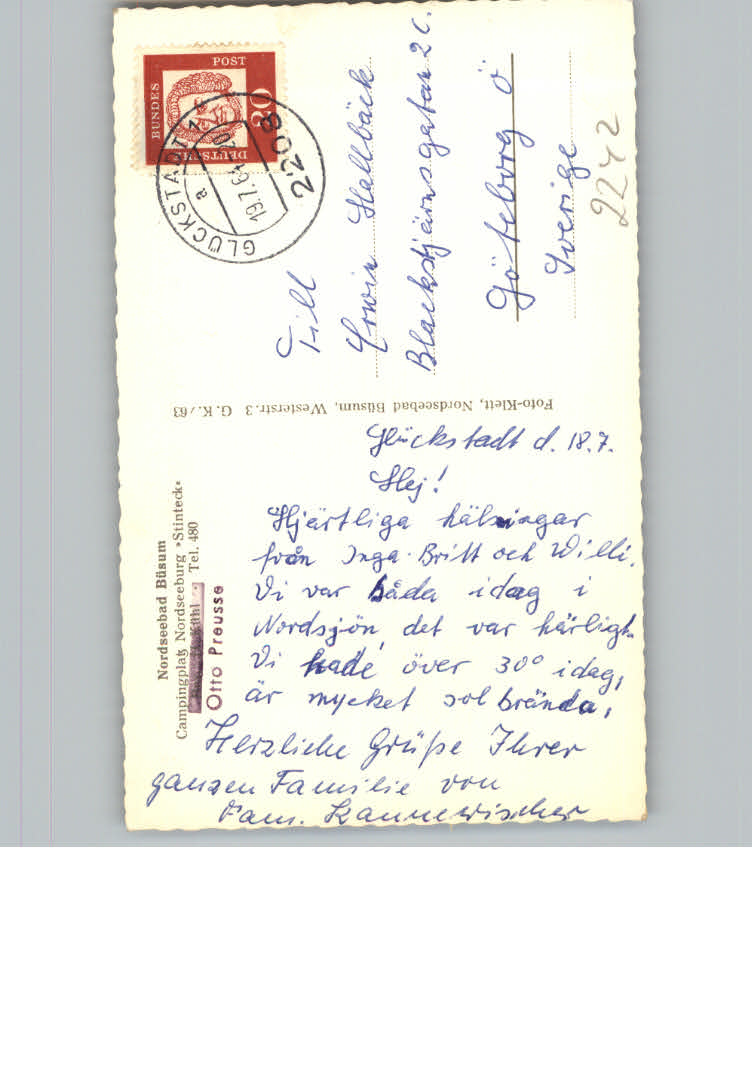 DEUTSCHE
BUNDES
POST
20
GLÜCKSTADT 1
a
19.7.64
20
2208
Till
Erwin Hallbäck
Blackstjärnsgatan 2 C.
Göteborg Ö
Sverige
2242
Foto-Klett, Nordseebad Büsum, Westerstr. 3 G. K./63
Nordseebad Büsum
Campingplatz Nordseeburg »Stinteck«
Tel. 480
Otto Preusse
Glückstadt d. 18.7.
Hej!
Hjärtliga hälsningar
från Inga-Britt och Willi.
Vi var båda idag i
Nordsjön, det var härligt.
Vi hade över 30° idag,
är mycket sol brända,
Herzliche Grüße Ihrer
ganzen Familie von
Fam. Kannewischer